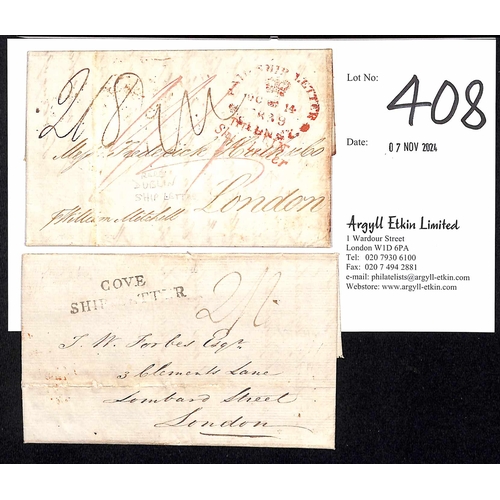 Lot No:
408
Date:
07 NOV 2024
Argyll Etkin Limited
1 Wardour Street
London W1D 6PA
Tel: 020 7930 6100
Fax: 020 7 494 2881
e-mail: philatelists@argyll-etkin.com
Webstore: www.argyll-etkin.com
2/8
PAID SHIP LETTER
14
Ship Letter
Frederick Huth & Co
SHIP LETTER
London
p William Mitchell
COVE
SHIP LETTER
J. W. Forbes Esqr
3 Clements Lane
Lombard Street
London